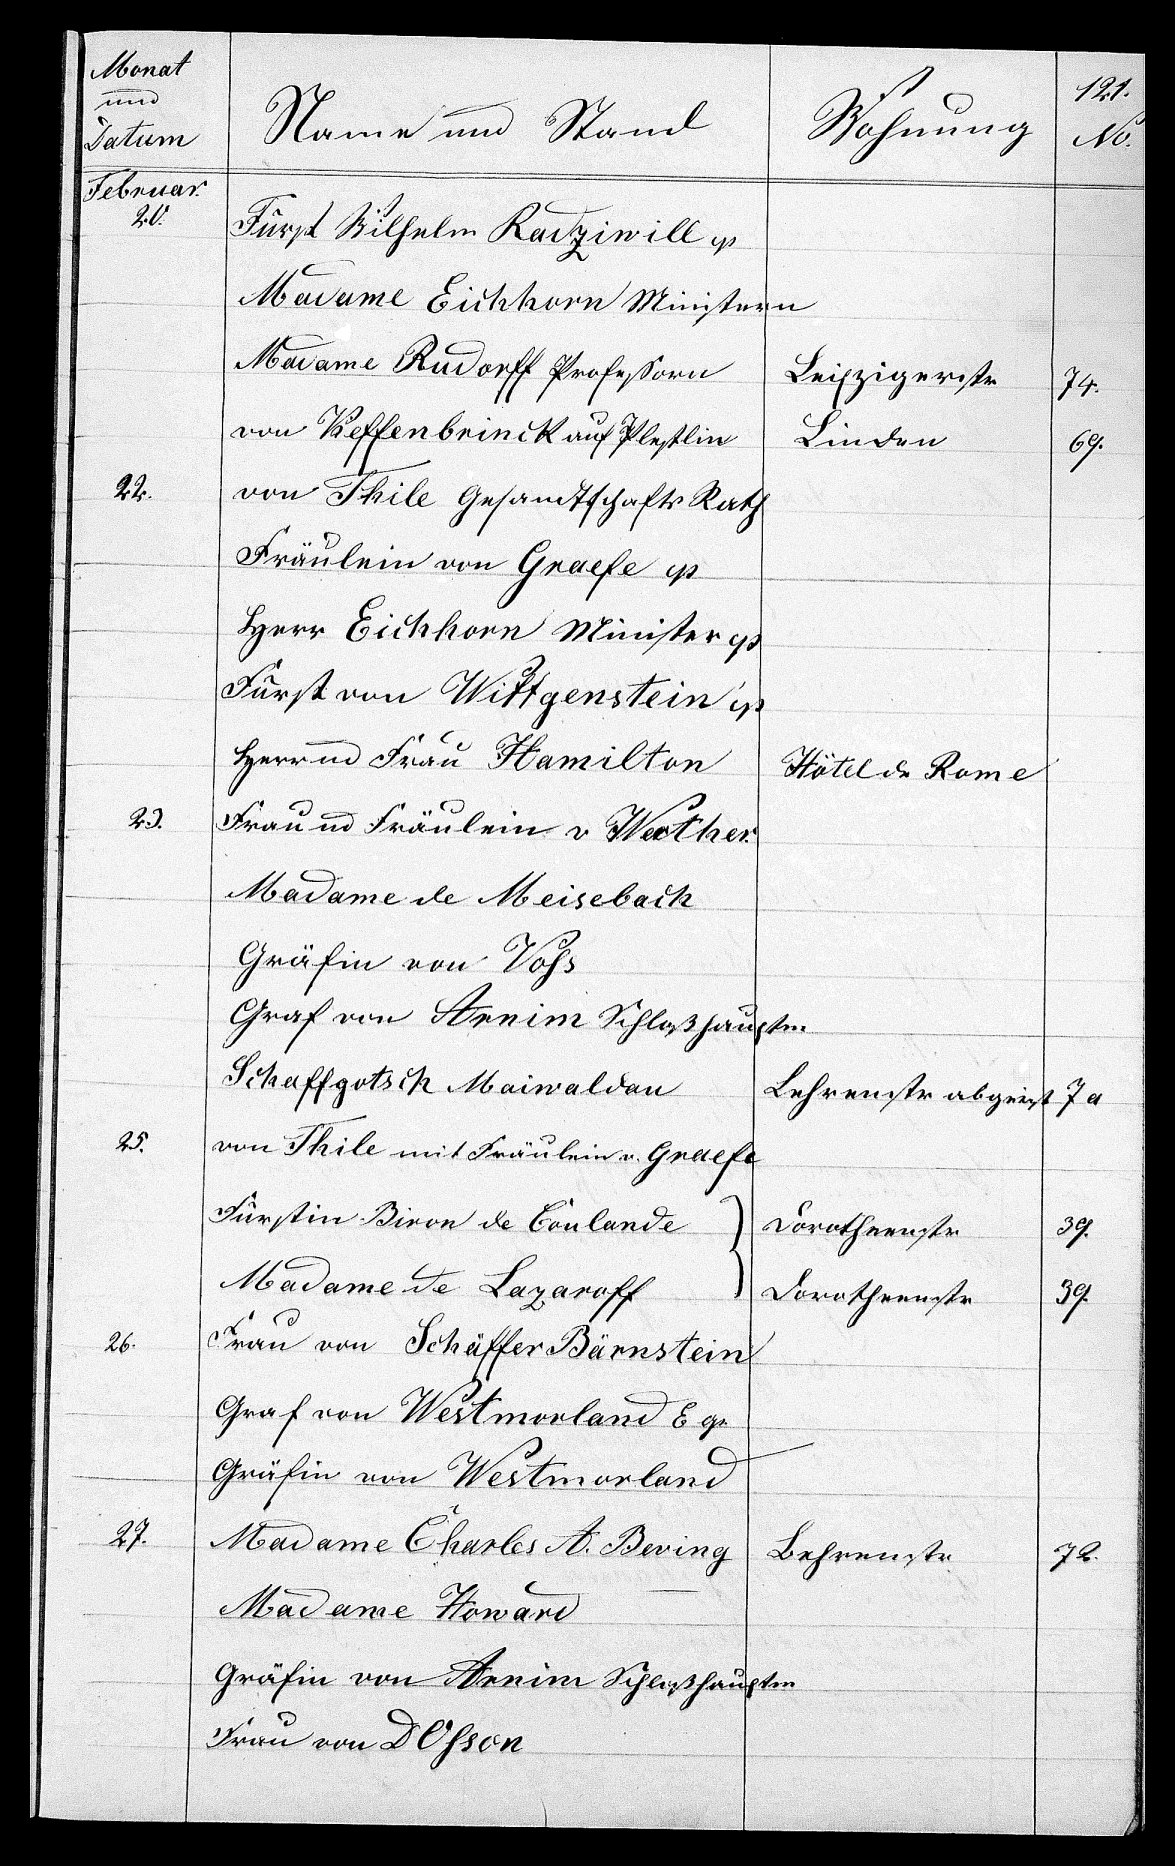 Monat und Datum | Name und Stand | Wohnung | 121. No.
Februar.
20. Fürst Wilhelm Radziwill
Madame Eichhorn Ministern
Madame Rudorff Professorn | Leipzigerstr | 74.
von Keffenbrinck auf Plestlin | Linden | 69.
22. von Thile Gesandtschafts Rath
Fräulein von Graefe
Herr Eichhorn Minister
Fürst von Wittgenstein
Herr und Frau Hamilton | Hôtel de Rome
23. Frau und Fräulein v Werther.
Madame de Meisebach
Gräfin von Voss
Graf von Arnim Schloßhauptm
Schaffgotsch Maiwaldau | Behrenstr abgereist | 7a
25. von Thile mit Fräulein v. Graefe
Fürstin Biron de Courlande | Dorotheenstr | 39.
Madame de Lazaroff | Dorotheenstr | 39.
26. Frau von Schäffer Bärnstein
Graf von Westmorland
Gräfin von Westmorland
27. Madame Charles A. Bering | Behrenstr | 72.
Madame Howard
Gräfin von Arnim Schloßhauptm
Frau von DOhsson